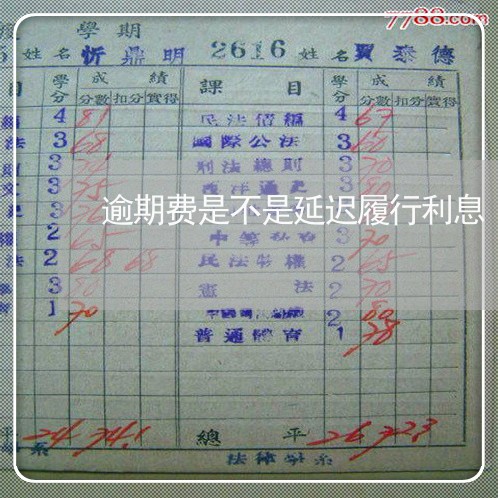 7788.com
學期
姓名 忻鼎明 2616 姓名 賈泰德
目 學分 成績 課目 學分 成績
分數 扣分 實得 分數 扣分 實得
4 81 民法債編 4 67
法 3 68 國際公法 3 60
3 刑法總則 3 70
3 75 西洋通史 3 80
逾期费是不是延迟履行利息
2 65 3 70
法 2 68 68 民法物權 2 65
3 80 憲法 2 70
1 70 2 80
普通體育 1 78
平 24 74.1 總平 26 72.3
系 法律學系